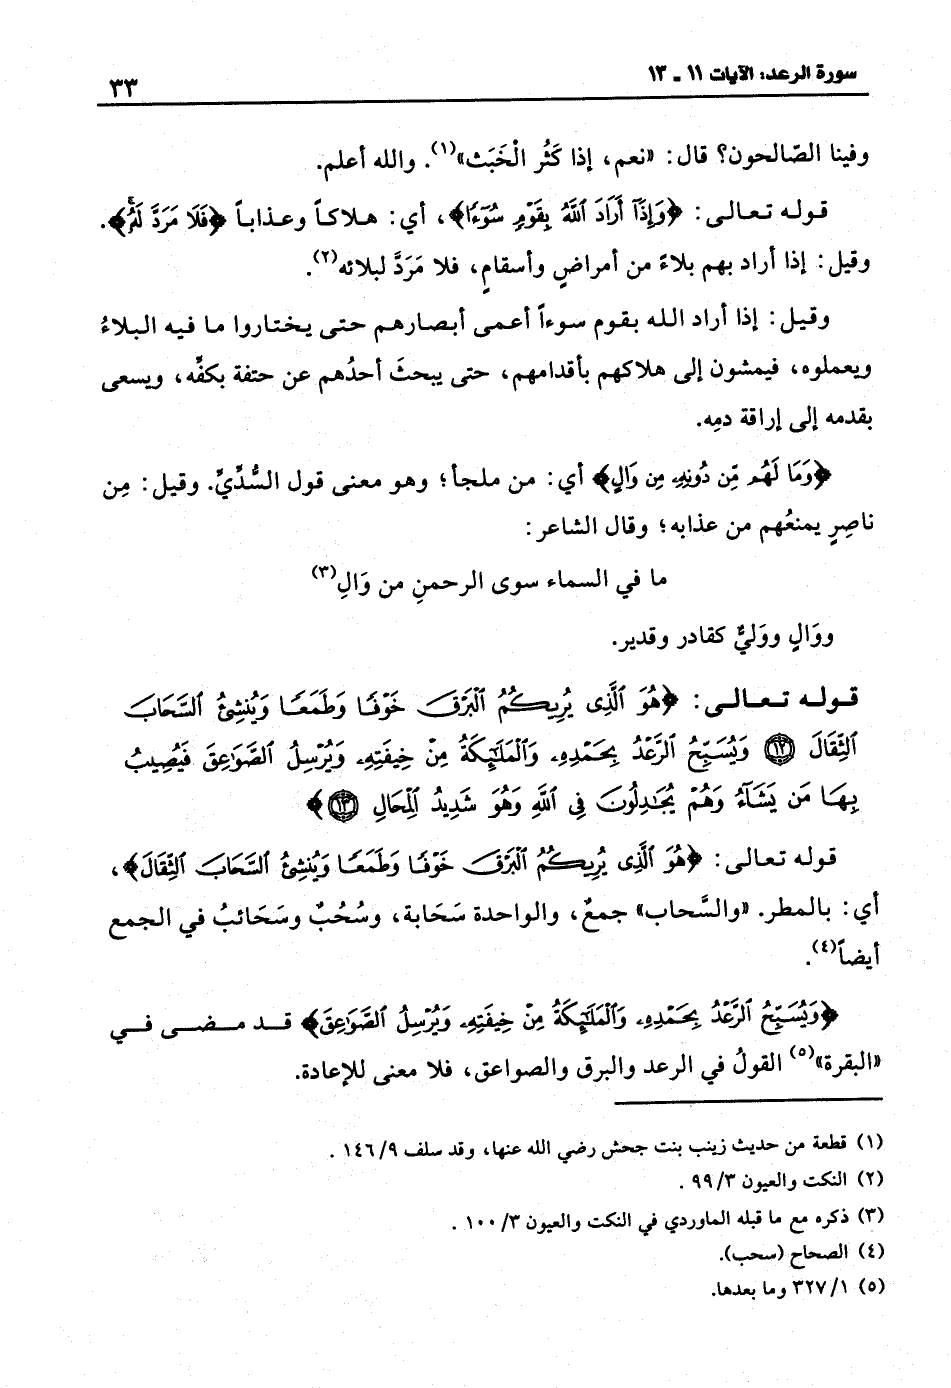 سورة الرعد: الآيات ١١ ـ ١٣
٣٣
وفينا الصّالحون؟ قال: «نعم، إذا كَثُر الْخَبَث»(١). والله أعلم.
قوله تعالى: ﴿وَإِذَآ أَرَادَ ٱللَّهُ بِقَوْمٍ سُوٓءًا﴾، أي: هلاكاً وعذاباً ﴿فَلَا مَرَدَّ لَهُۥ﴾.
وقيل: إذا أراد بهم بلاءً من أمراضٍ وأسقامٍ، فلا مَرَدَّ لبلائه(٢).
وقيل: إذا أراد الله بقوم سوءاً أعمى أبصارهم حتى يختاروا ما فيه البلاءُ
ويعملوه، فيمشون إلى هلاكهم بأقدامهم، حتى يبحثَ أحدُهم عن حتفة بكفِّه، ويسعى
بقدمه إلى إراقة دمِه.
﴿وَمَا لَهُم مِّن دُونِهِۦ مِن وَالٍ﴾ أي: من ملجأ؛ وهو معنى قول السُّدِّيِّ. وقيل: مِن
ناصِرٍ يمنعُهم من عذابه؛ وقال الشاعر:
ما في السماء سوى الرحمنِ من وَالِ(٣)
ووَالٍ ووَليٌّ كقادر وقدير.
قوله تعالى: ﴿هُوَ ٱلَّذِى يُرِيكُمُ ٱلْبَرْقَ خَوْفًا وَطَمَعًا وَيُنشِئُ ٱلسَّحَابَ
ٱلثِّقَالَ ١٢ وَيُسَبِّحُ ٱلرَّعْدُ بِحَمْدِهِۦ وَٱلْمَلَٰٓئِكَةُ مِنْ خِيفَتِهِۦ وَيُرْسِلُ ٱلصَّوَٰعِقَ فَيُصِيبُ
بِهَا مَن يَشَآءُ وَهُمْ يُجَٰدِلُونَ فِى ٱللَّهِ وَهُوَ شَدِيدُ ٱلْمِحَالِ ١٣﴾
قوله تعالى: ﴿هُوَ ٱلَّذِى يُرِيكُمُ ٱلْبَرْقَ خَوْفًا وَطَمَعًا وَيُنشِئُ ٱلسَّحَابَ ٱلثِّقَالَ﴾،
أي: بالمطر. «والسَّحاب» جمعٌ، والواحدة سَحَابة، وسُحُبٌ وسَحَائبُ في الجمع
أيضاً(٤).
﴿وَيُسَبِّحُ ٱلرَّعْدُ بِحَمْدِهِۦ وَٱلْمَلَٰٓئِكَةُ مِنْ خِيفَتِهِۦ وَيُرْسِلُ ٱلصَّوَٰعِقَ﴾ قد مضى في
«البقرة»(٥) القولُ في الرعد والبرق والصواعق، فلا معنى للإعادة.
(١) قطعة من حديث زينب بنت جحش رضي الله عنها، وقد سلف ٩/ ١٤٦ .
(٢) النكت والعيون ٣/ ٩٩ .
(٣) ذكره مع ما قبله الماوردي في النكت والعيون ٣/ ١٠٠ .
(٤) الصحاح (سحب).
(٥) ١/ ٣٢٧ وما بعدها.